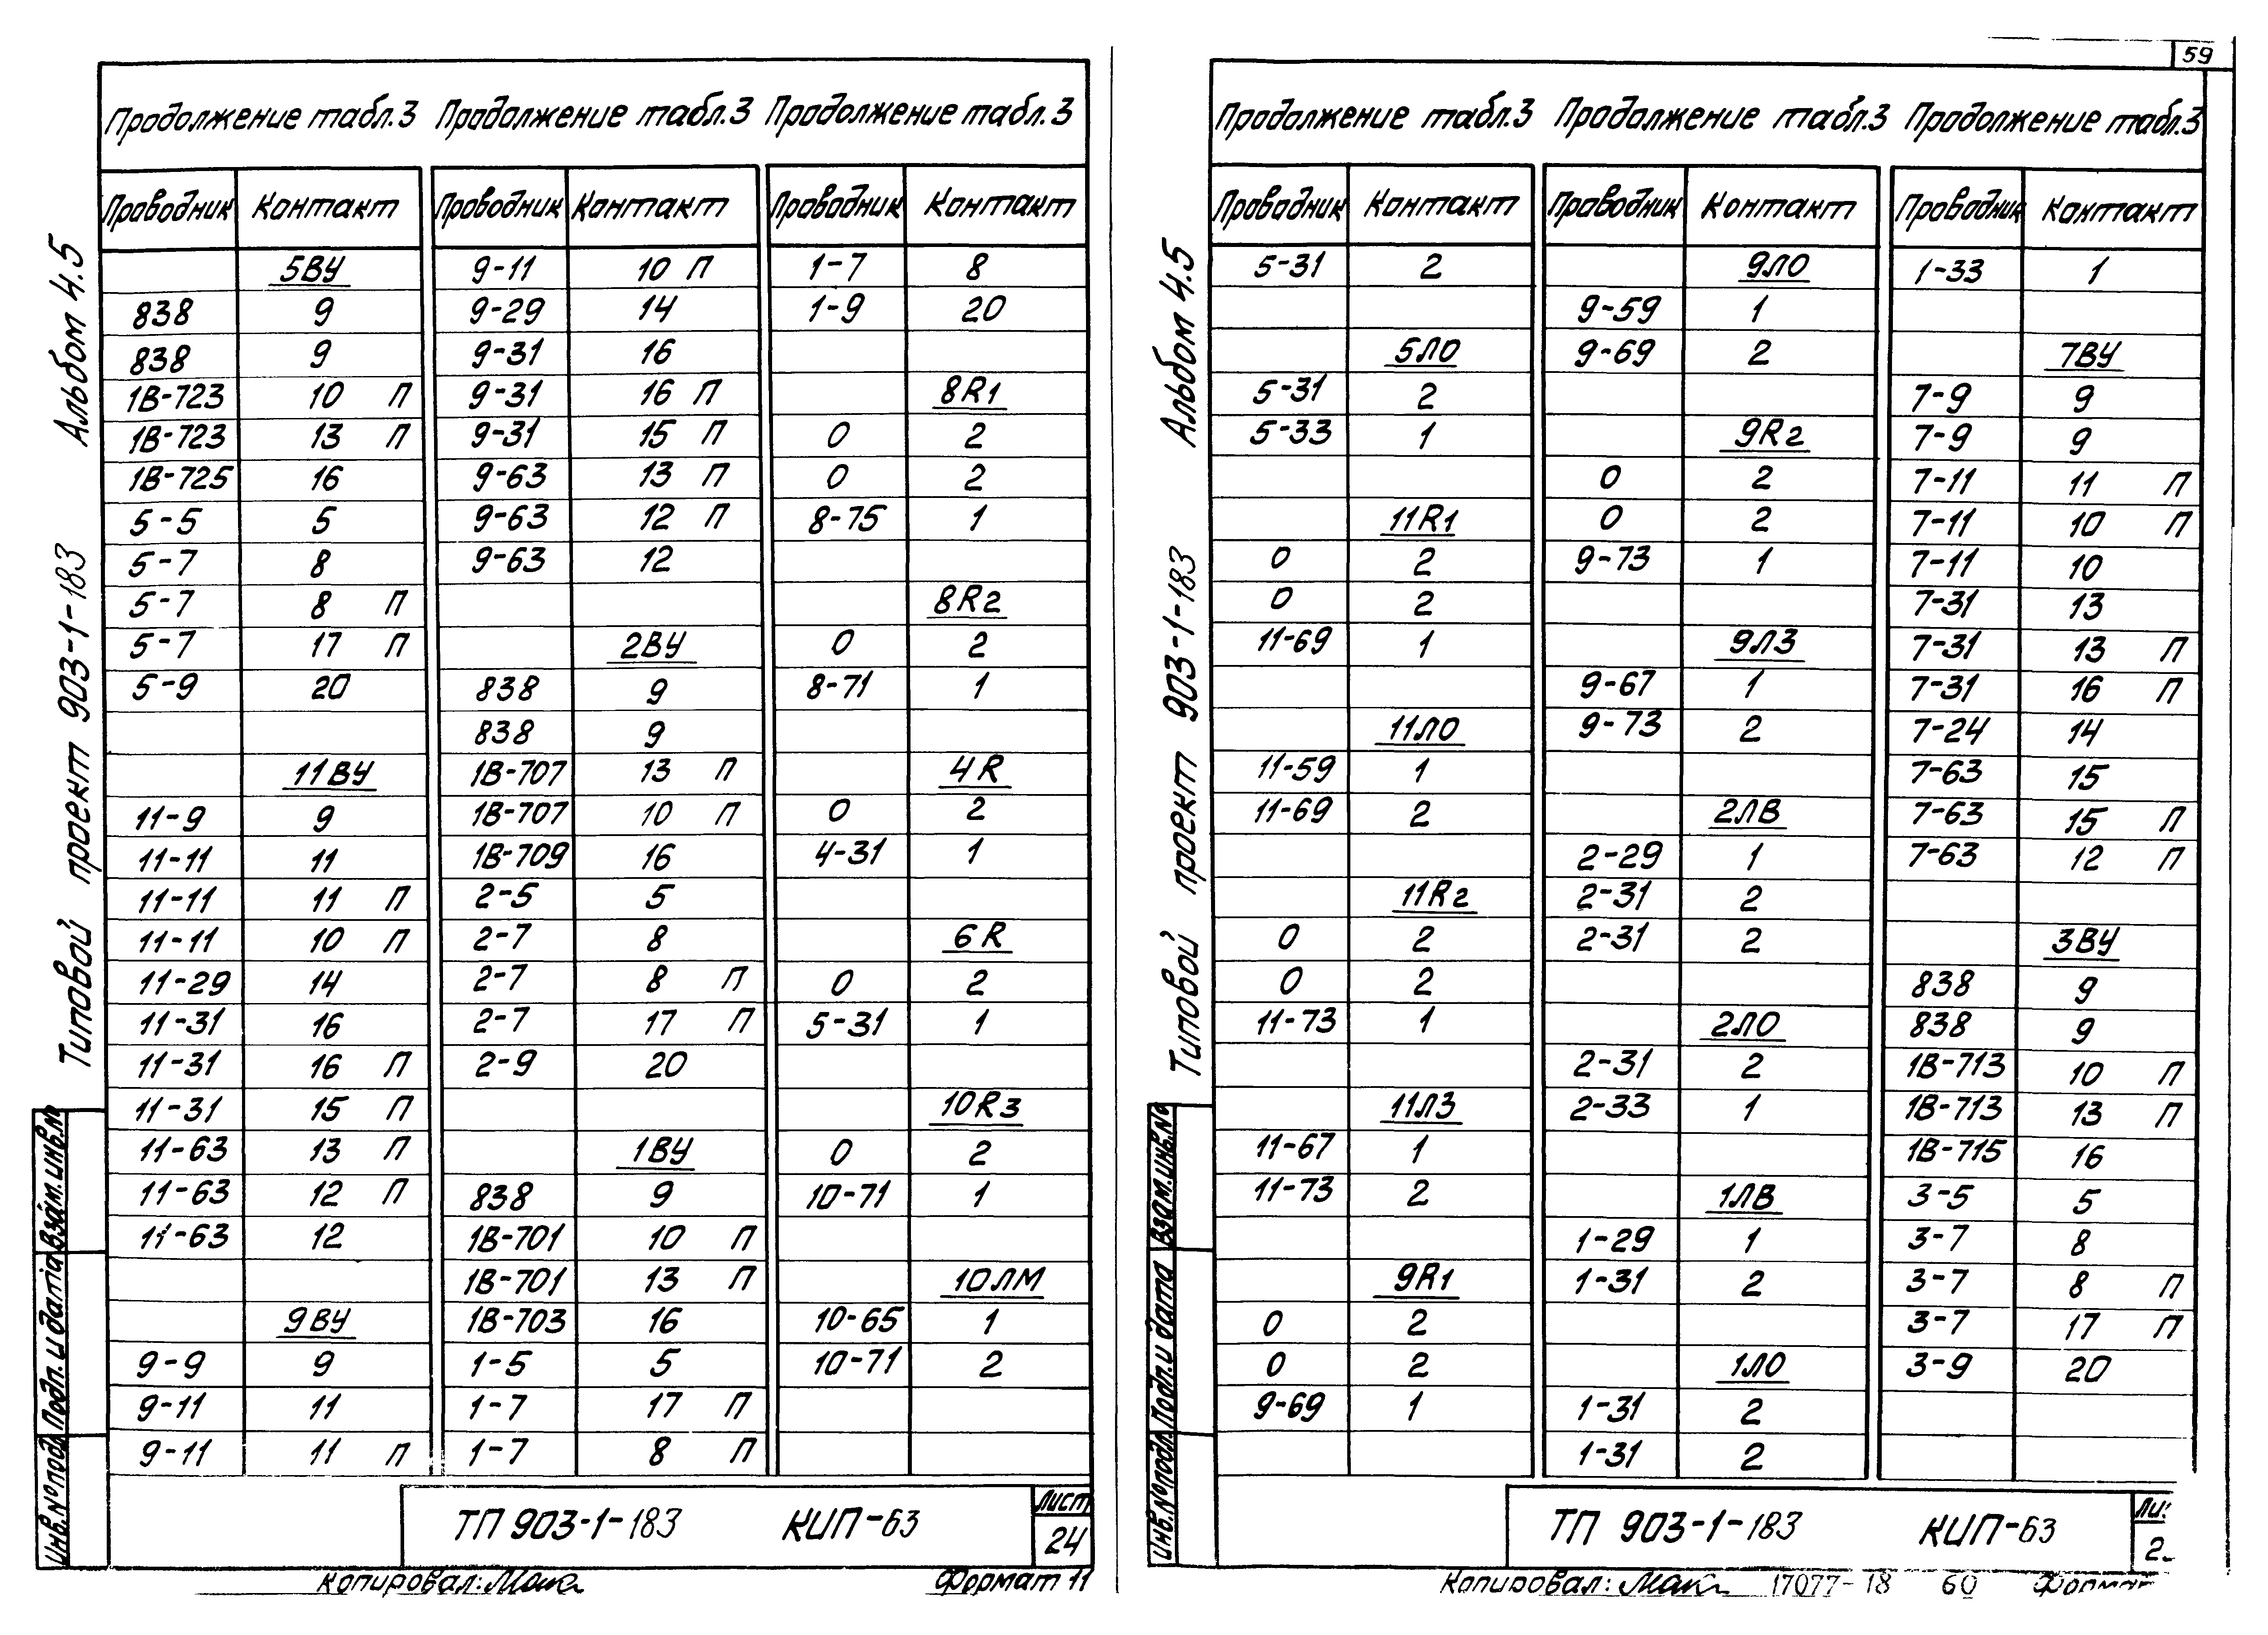 59
Продолжение табл.3 Продолжение табл.3 Продолжение табл.3
Проводник Контакт Проводник Контакт Проводник Контакт
5ВУ 9-11 10 П 1-7 8
838 9 9-29 14 1-9 20
838 9 9-31 16
1В-723 10 П 9-31 16 П 8R1
1В-723 13 П 9-31 15 П 0 2
1В-725 16 9-63 13 П 0 2
5-5 5 9-63 12 П 8-75 1
5-7 8 9-63 12
5-7 8 П 8R2
5-7 17 П 2ВУ 0 2
5-9 20 838 9 8-71 1
838 9
11ВУ 1В-707 13 П 4R
11-9 9 1В-707 10 П 0 2
11-11 11 1В-709 16 4-31 1
11-11 11 П 2-5 5
11-11 10 П 2-7 8 6R
11-29 14 2-7 8 П 0 2
11-31 16 2-7 17 П 5-31 1
11-31 16 П 2-9 20
11-31 15 П 10R3
11-63 13 П 1ВУ 0 2
11-63 12 П 838 9 10-71 1
11-63 12 1В-701 10 П
1В-701 13 П 10ЛМ
9ВУ 1В-703 16 10-65 1
9-9 9 1-5 5 10-71 2
9-11 11 1-7 17 П
9-11 11 П 1-7 8 П
ТП 903-1-183 КИП-63 Лист 24
Копировал: Формат 11
Типовой проект 903-1-183 Альбом 4.5
Инв.№подл. Подп. и дата Взам.инв.№
Продолжение табл.3 Продолжение табл.3 Продолжение табл.3
Проводник Контакт Проводник Контакт Проводник Контакт
5-31 2 9ЛО 1-33 1
9-59 1
5ЛО 9-69 2 7ВУ
5-31 2 7-9 9
5-33 1 9R2 7-9 9
0 2 7-11 11 П
11R1 0 2 7-11 10 П
0 2 9-73 1 7-11 10
0 2 7-31 13
11-69 1 9ЛЗ 7-31 13 П
9-67 1 7-31 16 П
11ЛО 9-73 2 7-24 14
11-59 1 7-63 15
11-69 2 2ЛВ 7-63 15 П
2-29 1 7-63 12 П
11R2 2-31 2
0 2 2-31 2 3ВУ
0 2 838 9
11-73 1 2ЛО 838 9
2-31 2 1В-713 10 П
11ЛЗ 2-33 1 1В-713 13 П
11-67 1 1В-715 16
11-73 2 1ЛВ 3-5 5
1-29 1 3-7 8
9R1 1-31 2 3-7 8 П
0 2 3-7 17 П
0 2 1ЛО 3-9 20
9-69 1 1-31 2
1-31 2
ТП 903-1-183 КИП-63
Копировал: 17077-18 60
Типовой проект 903-1-183 Альбом 4.5
Инв.№подл. Подп. и дата Взам.инв.№